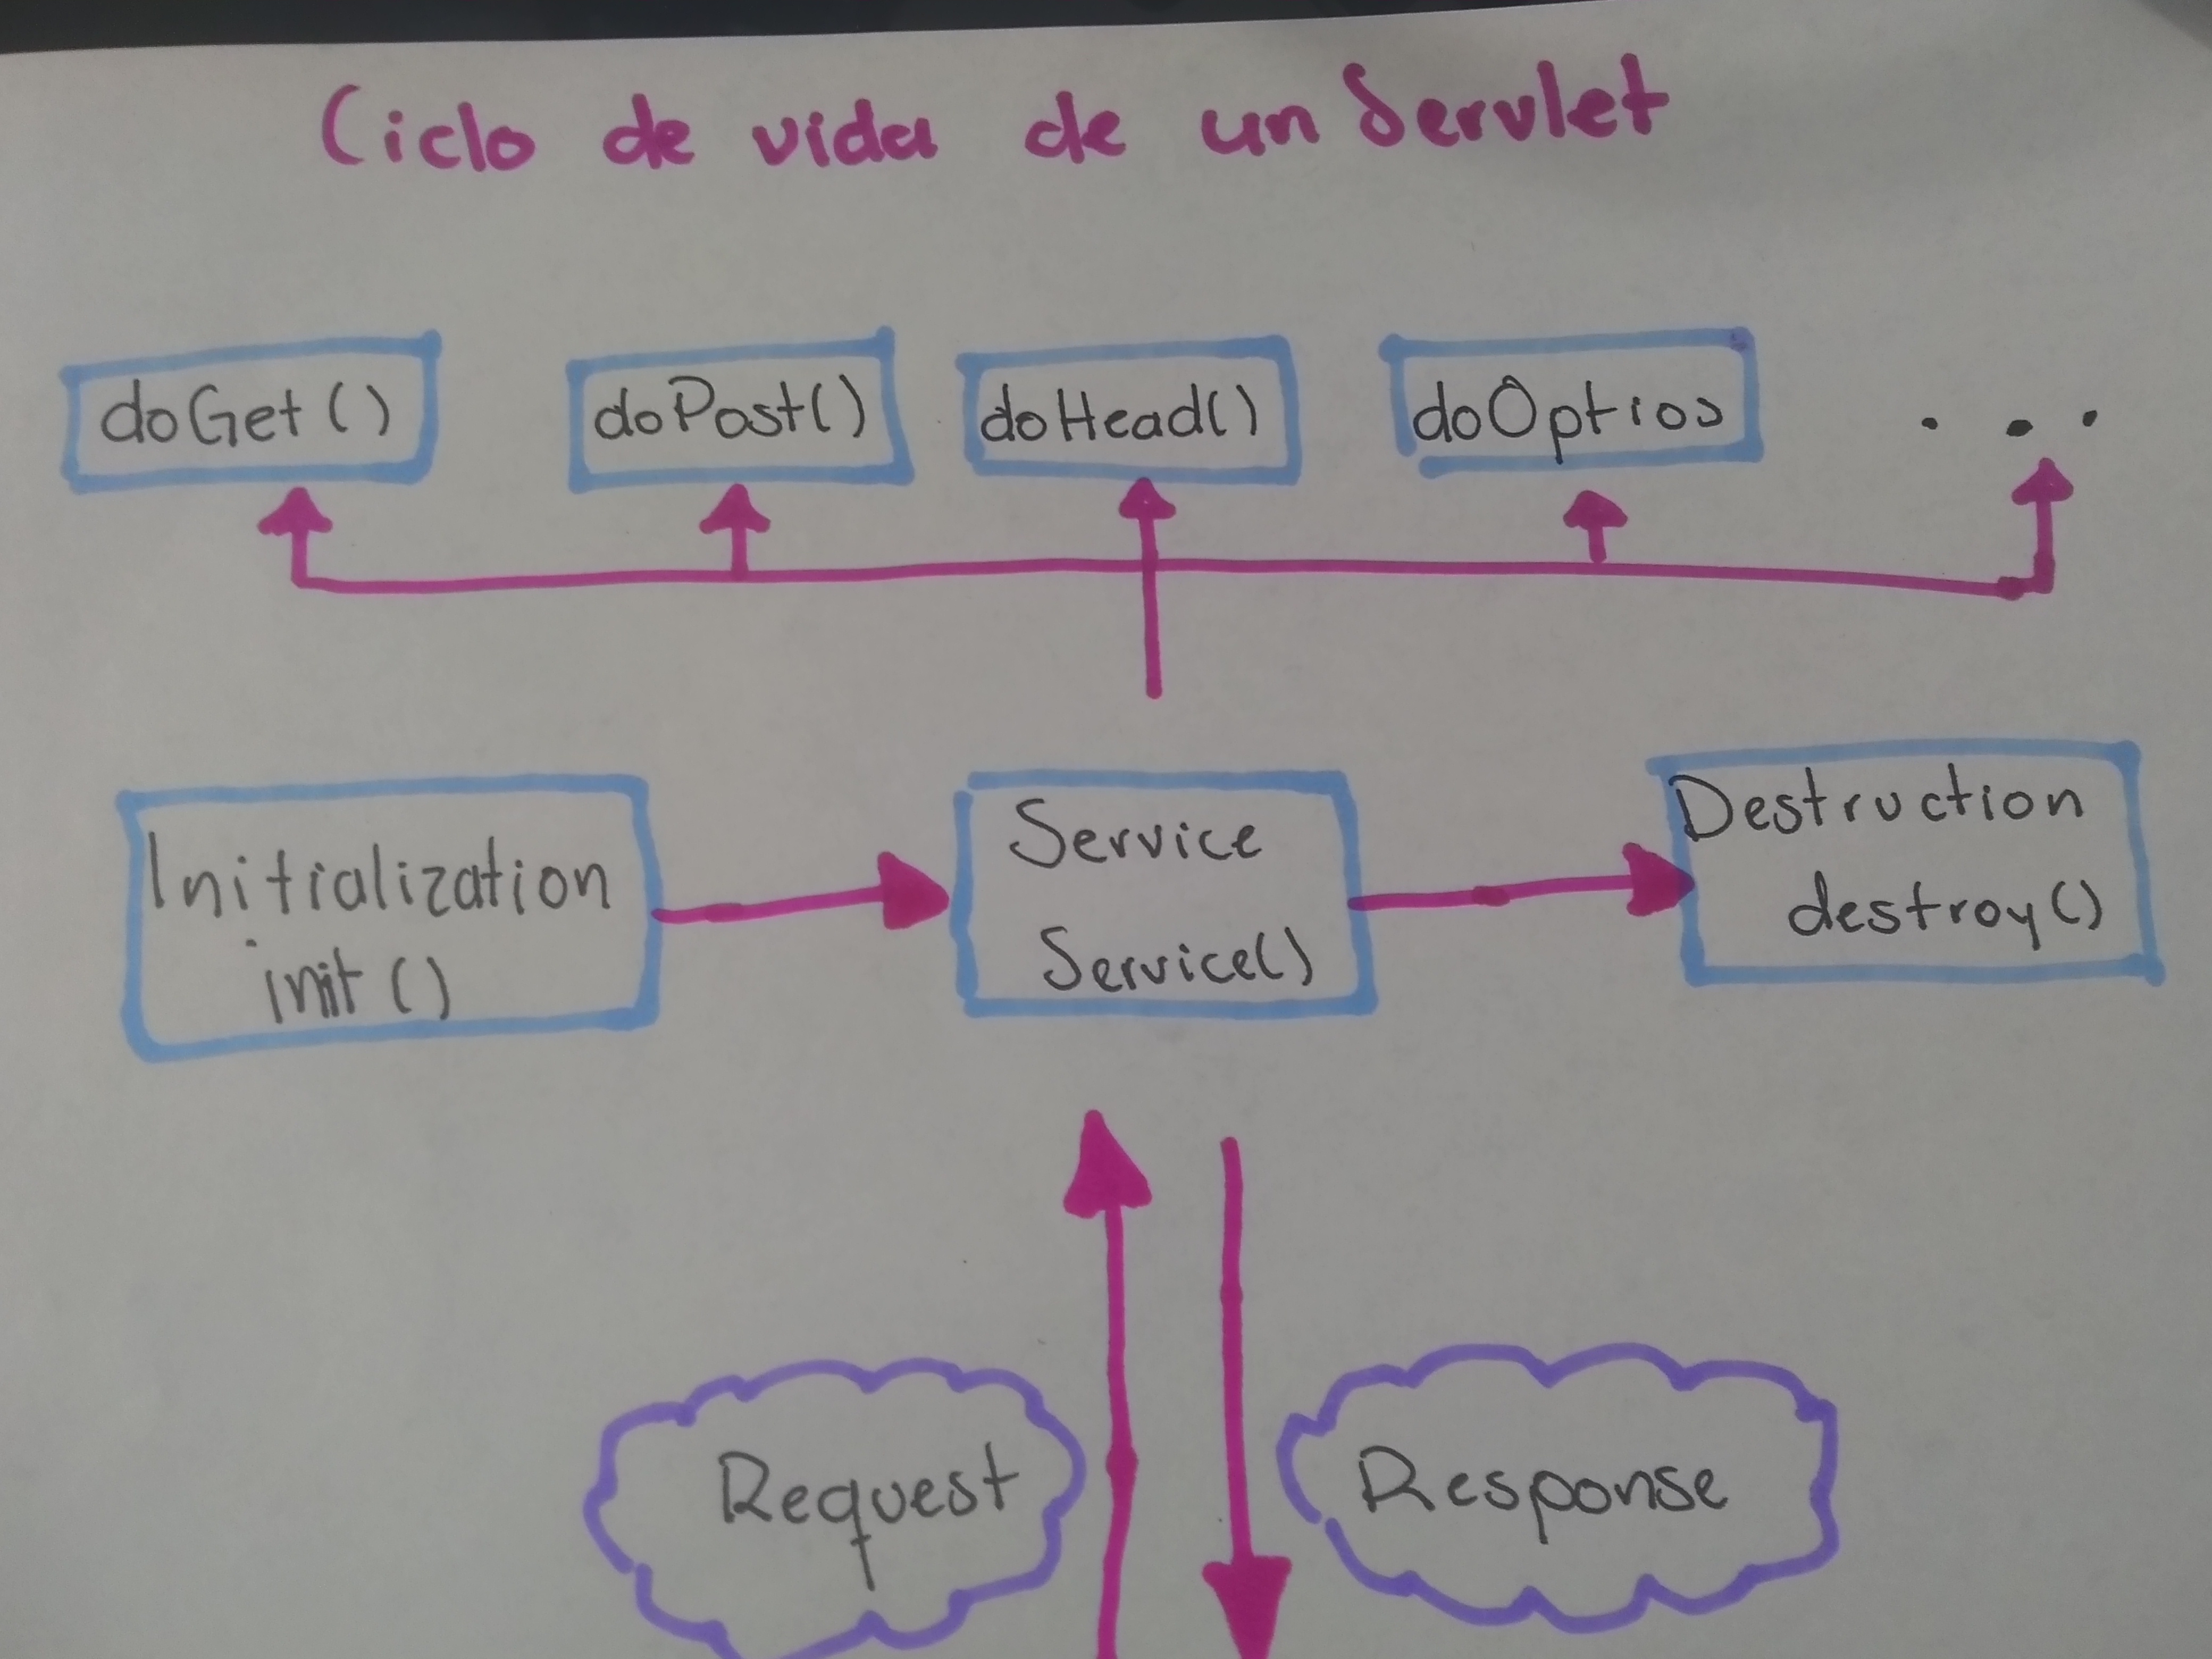 Ciclo de vida de un Servlet
doGet()
doPost()
doHead()
doOptios
...
Initialization
init()
Service
Service()
Destruction
destroy()
Request
Response